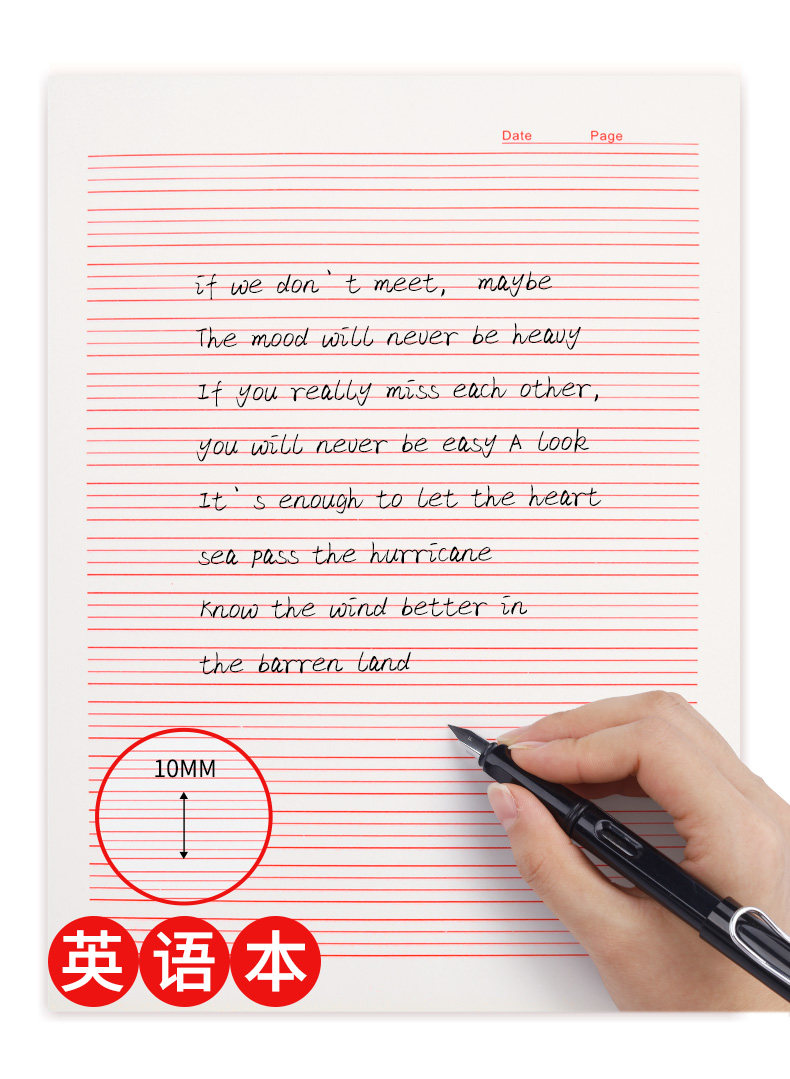 Date Page
if we don`t meet, maybe
The mood will never be heavy
If you really miss each other,
you will never be easy A look
It`s enough to let the heart
sea pass the hurricane
Know the wind better in
the barren land
10MM
英语本